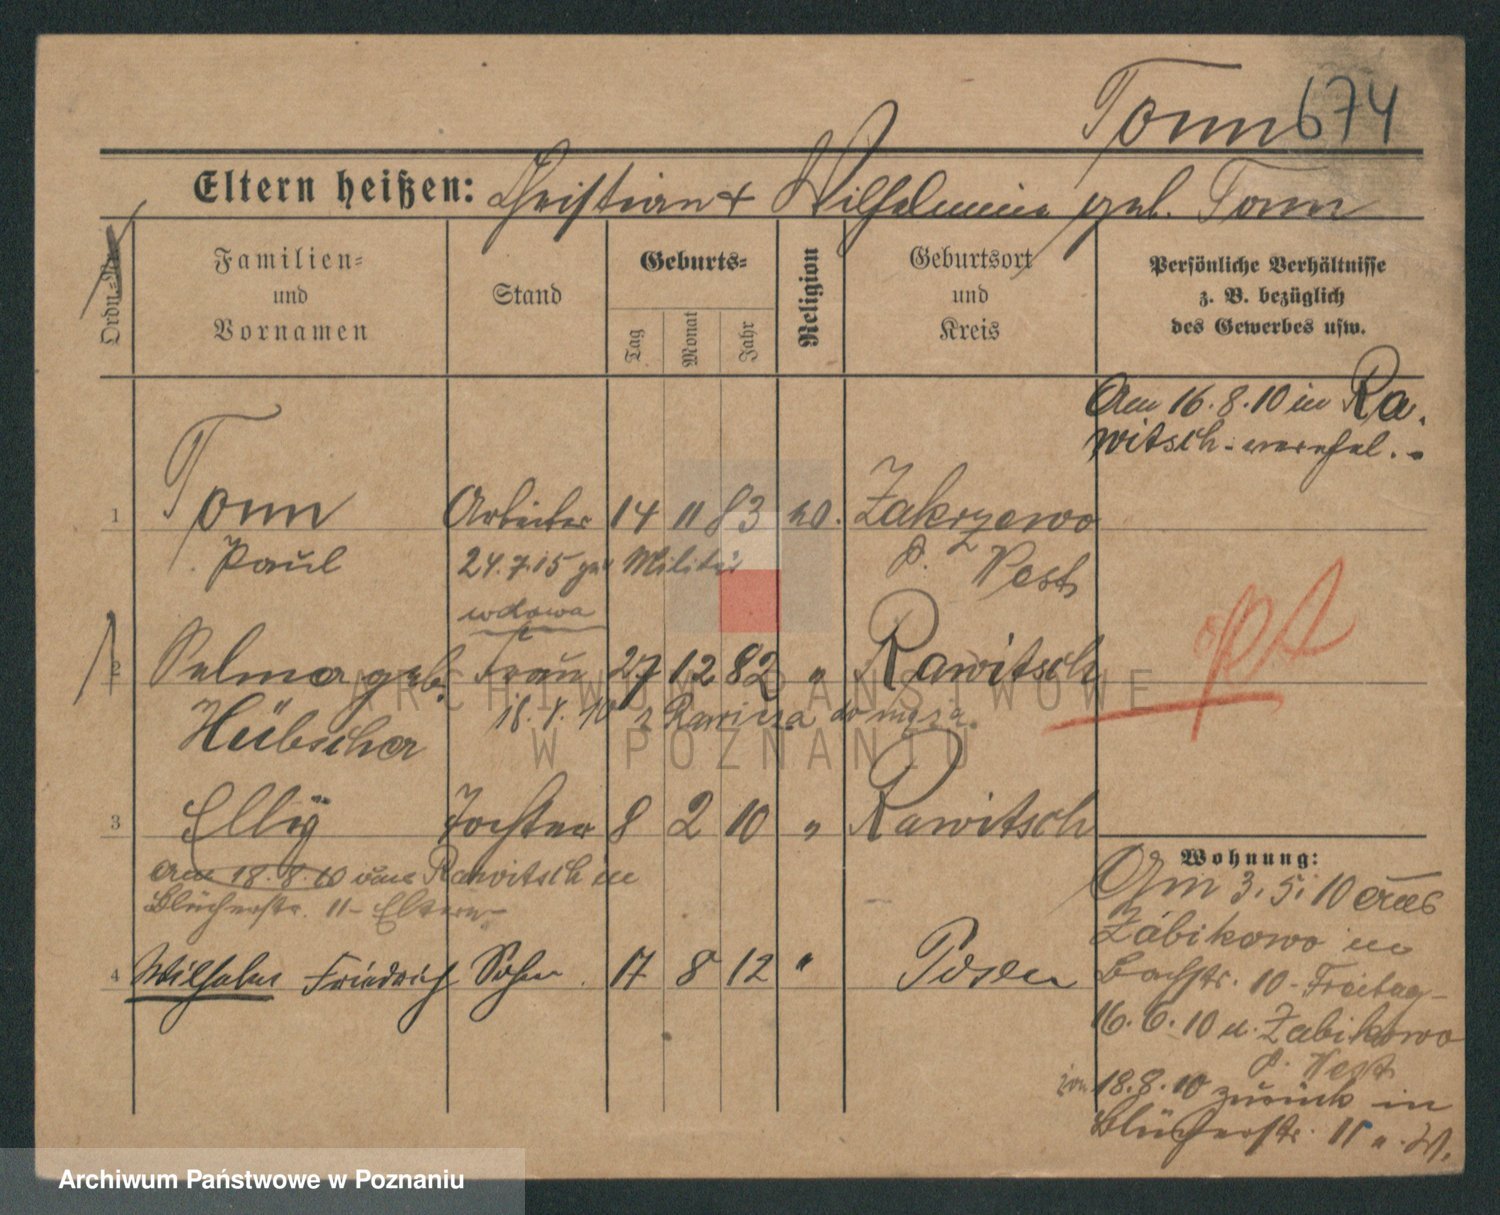 Tonn 674
Eltern heißen: Christian + Wilhelmine geb. Tonn
Ordn.-Nr.
Familien- und Vornamen
Stand
Geburts-
Tag
Monat
Jahr
Religion
Geburtsort und Kreis
Persönliche Verhältnisse
z. B. bezüglich
des Gewerbes usw.
Am 16.8.10 in Ra-
witsch verehel.
1 Tonn Arbeiter 14 11 83 Zakrzewo
Paul 24.7.15 Militär P. West
wdowa
2 Selma geb. Frau 27 12 82 " Rawitsch
Hübscher 18. 8. 10 z Rawicza do męża
3 Elly Tochter 8 2 10 " Rawitsch
am 18.8.10 aus Rawitsch in
Blücherstr. 11 - Eltern -
4 Wilhelm Friedrich Sohn 17 8 12 " Posen
Wohnung:
Am 3.5.10 aus
Zabikowo in
Bachstr. 10 - Freitag -
16.6.10 n. Zabikowo
P. West
18.8.10 zurück in
Blücherstr. 11
ARCHIWUM PAŃSTWOWE
W POZNANIU
Archiwum Państwowe w Poznaniu